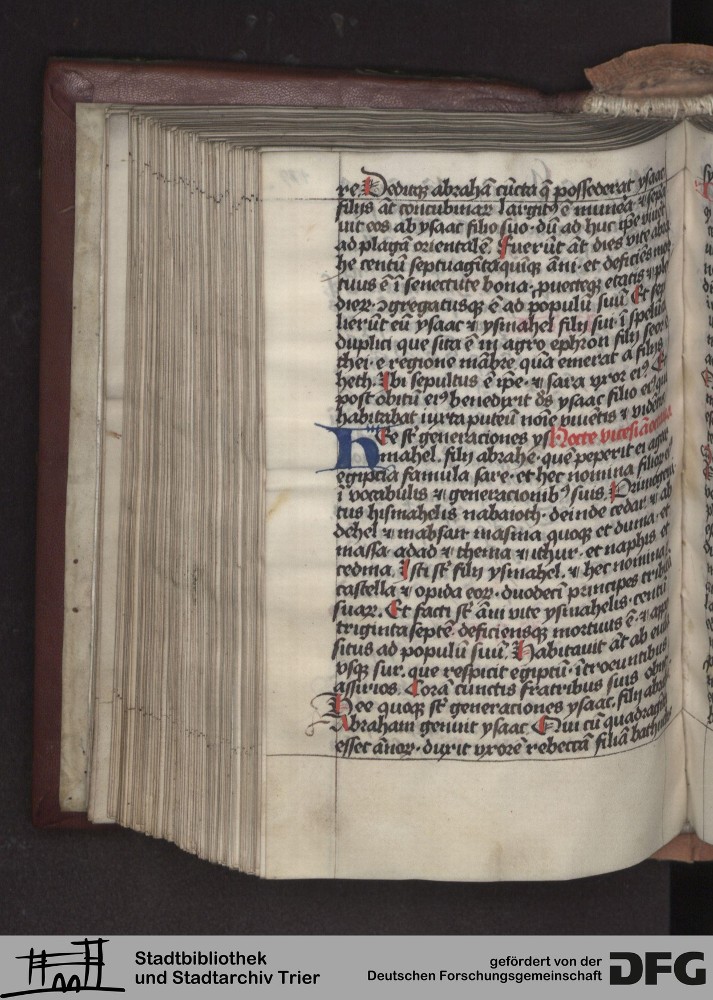 re Deditq̄ abrahā cūcta q̄ possederat ysaac
filijs āt concubinar largit⁹ ē mun̄a
uit eos ab ysaac filio suo· dū ad huc ip̄e
ad plagā orientalē. fuerūt āt dies vite abra
he centū septuagītaquīq̄ āni· et deficiēs
tuus ē ī senectute bona· etatis
dier· ↄgregatusq̄ ē ad populū suū Et sep
lierūt eū ysaac ⁊ ysmahel filij sui ī spelūca
duplici que sita ē in agro ephron filij seor
e regione mābre quā emerat a filijs
heth. Ibi sepultus ē ip̄e· ⁊ sara vxor ei⁹ Et
post obitū ei⁹ benedixit d̄s ysaac filio ei⁹ qui
habitabat iuxta puteū nōie viuētis ⁊ vidētis
Hee st̄ generaciones ys
mahel. filij abrahe· quē peperit ei agar
egiptia famula sare· et hec nomina filior
ī vocabulis ⁊ generacionib⁹ suis. Primogeni
tus hismahelis nabaioth· deinde cedar ⁊ ab
dehel ⁊ mabsan masma quoq̄ et duma· et
massa· adad ⁊ thema ⁊ ithur· et naphis et
cedma. Isti st̄ filij ysmahel. ⁊ hec nomina
castella ⁊ opida eor· duodecī principes tribuū
suar. Et facti st̄ āni vite ysmahelis· centū
trigintaseptē deficiensq̄ mortuus ē· ⁊ appo
situs ad populū suū. Habitauit āt ab euila
vsq̄ sur. que respicit egiptū· ītroeuntibus
assirios. Corā cūnctis fratribus suis obijt
Hee quoq̄ st̄ generaciones ysaac. filij abrahe
Abraham genuit ysaac. Qui cū quadragīta
esset ānor· duxit vxorē rebeccā filiā bathuel
Stadtbibliothek
und Stadtarchiv Trier
gefördert von der
Deutschen Forschungsgemeinschaft
DFG